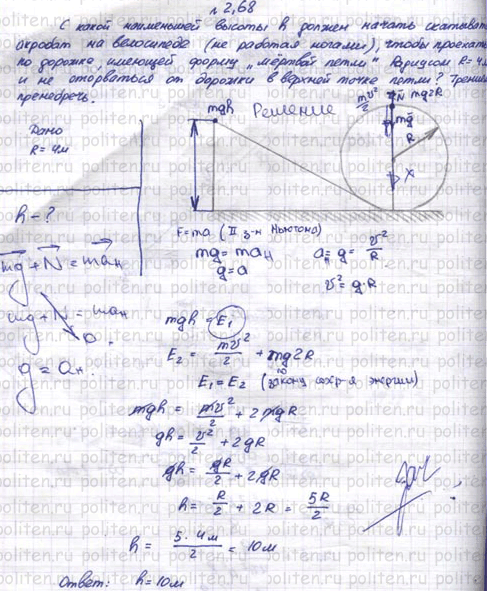 № 2,68
С какой наименьшей высоты h должен начать скатываться
акробат на велосипеде (не работая ногами), чтобы проехать
по дорожке, имеющей форму „мертвой петли" Радиусом R=4м
и не оторваться от дорожки в верхней точке петли? Трением
пренебречь.
Дано
R = 4м
h - ?
Решение
mgh
mv²/2
N
mg2R
mg
R
X
F=ma (II з-н Ньютона)
mg = maн
g=a
aн = g = v²/R
v² = g·R
mg + N = maн
mg + N = maн
0
g = aн.
mgh = E₁
E₂ = mv²/2 + mg2R
E₁=E₂ (по закону сохр-я энергии)
mgh = mv²/2 + 2mgR
gh = v²/2 + 2gR
gh = gR/2 + 2gR
h = R/2 + 2R = 5R/2
h = 5·4м/2 = 10м
Ответ: h=10м
politen.ru politen.ru politen.ru politen.ru